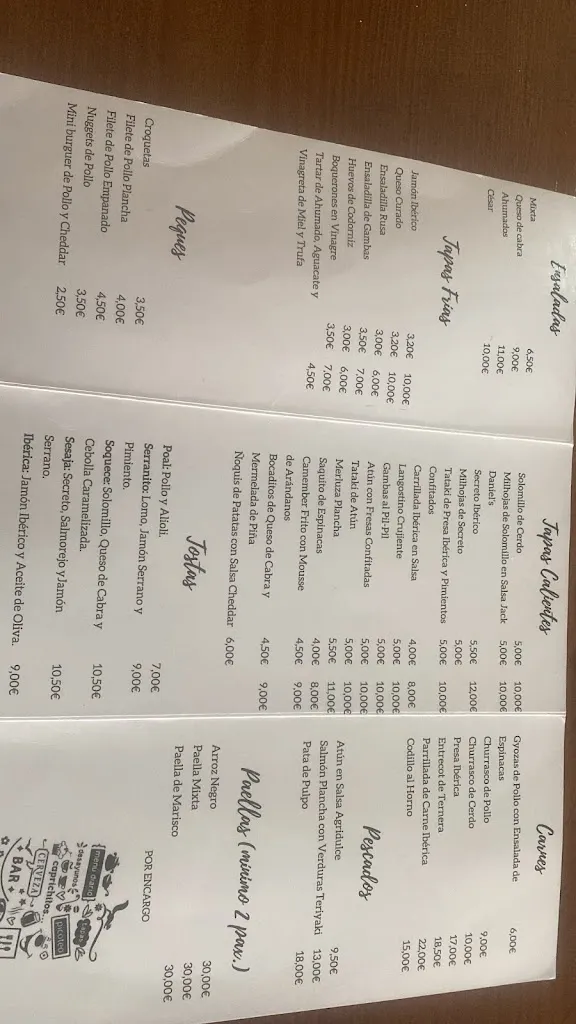 Ensaladas
Mixta 6,50€
Queso de cabra 9,00€
Ahumados 11,00€
César 10,00€
Tapas Frías
Jamón Ibérico 3,20€ 10,00€
Queso Curado 3,20€ 10,00€
Ensaladilla Rusa 3,00€ 6,00€
Ensaladilla de Gambas 3,50€ 7,00€
Huevos de Codorniz 3,00€ 6,00€
Boquerones en Vinagre 3,50€ 7,00€
Tartar de Ahumado, Aguacate y
Vinagreta de Miel y Trufa 4,50€
Peques
Croquetas 3,50€
Filete de Pollo Plancha 4,00€
Filete de Pollo Empanado 4,50€
Nuggets de Pollo 3,50€
Mini burguer de Pollo y Cheddar 2,50€
Tapas Calientes
Solomillo de Cerdo 5,00€ 10,00€
Milhojas de Solomillo en Salsa Jack 5,00€ 10,00€
Daniel's
Secreto Ibérico 5,50€ 12,00€
Milhojas de Secreto 5,00€
Tataki de Presa Ibérica y Pimientos 5,00€ 10,00€
Confitados
Carrillada Ibérica en Salsa 4,00€ 8,00€
Langostino Crujiente 5,00€ 10,00€
Gambas al Pil-Pil 5,00€ 10,00€
Atún con Fresas Confitadas 5,00€ 10,00€
Tataki de Atún 5,00€ 10,00€
Merluza Plancha 5,50€ 11,00€
Saquito de Espinacas 4,00€ 8,00€
Camember Frito con Mousse 4,50€ 9,00€
de Arándanos
Bocaditos de Queso de Cabra y 4,50€ 9,00€
Mermelada de Piña
Ñoquis de Patatas con Salsa Cheddar 6,00€
Tostas
Poal: Pollo y Alioli. 7,00€
Serranito: Lomo, Jamón Serrano y 9,00€
Pimiento.
Soquece: Solomillo, Queso de Cabra y
Cebolla Caramelizada. 10,50€
Sesaja: Secreto, Salmorejo y Jamón
Serrano. 10,50€
Ibérica: Jamón Ibérico y Aceite de Oliva. 9,00€
Carnes
Gyozas de Pollo con Ensalada de 6,00€
Espinacas
Churrasco de Pollo 9,00€
Churrasco de Cerdo 10,00€
Presa Ibérica 17,00€
Entrecot de Ternera 18,50€
Parrillada de Carne Ibérica 22,00€
Codillo al Horno 15,00€
Pescados
Atún en Salsa Agridulce 9,50€
Salmón Plancha con Verduras Teriyaki 13,00€
Pata de Pulpo 18,00€
Paellas (mínimo 2 pax.)
Arroz Negro 30,00€
Paella Mixta 30,00€
Paella de Marisco 30,00€
POR ENCARGO
menu diario
desayunos
caprichitos...
picoteo
CERVEZA
BAR